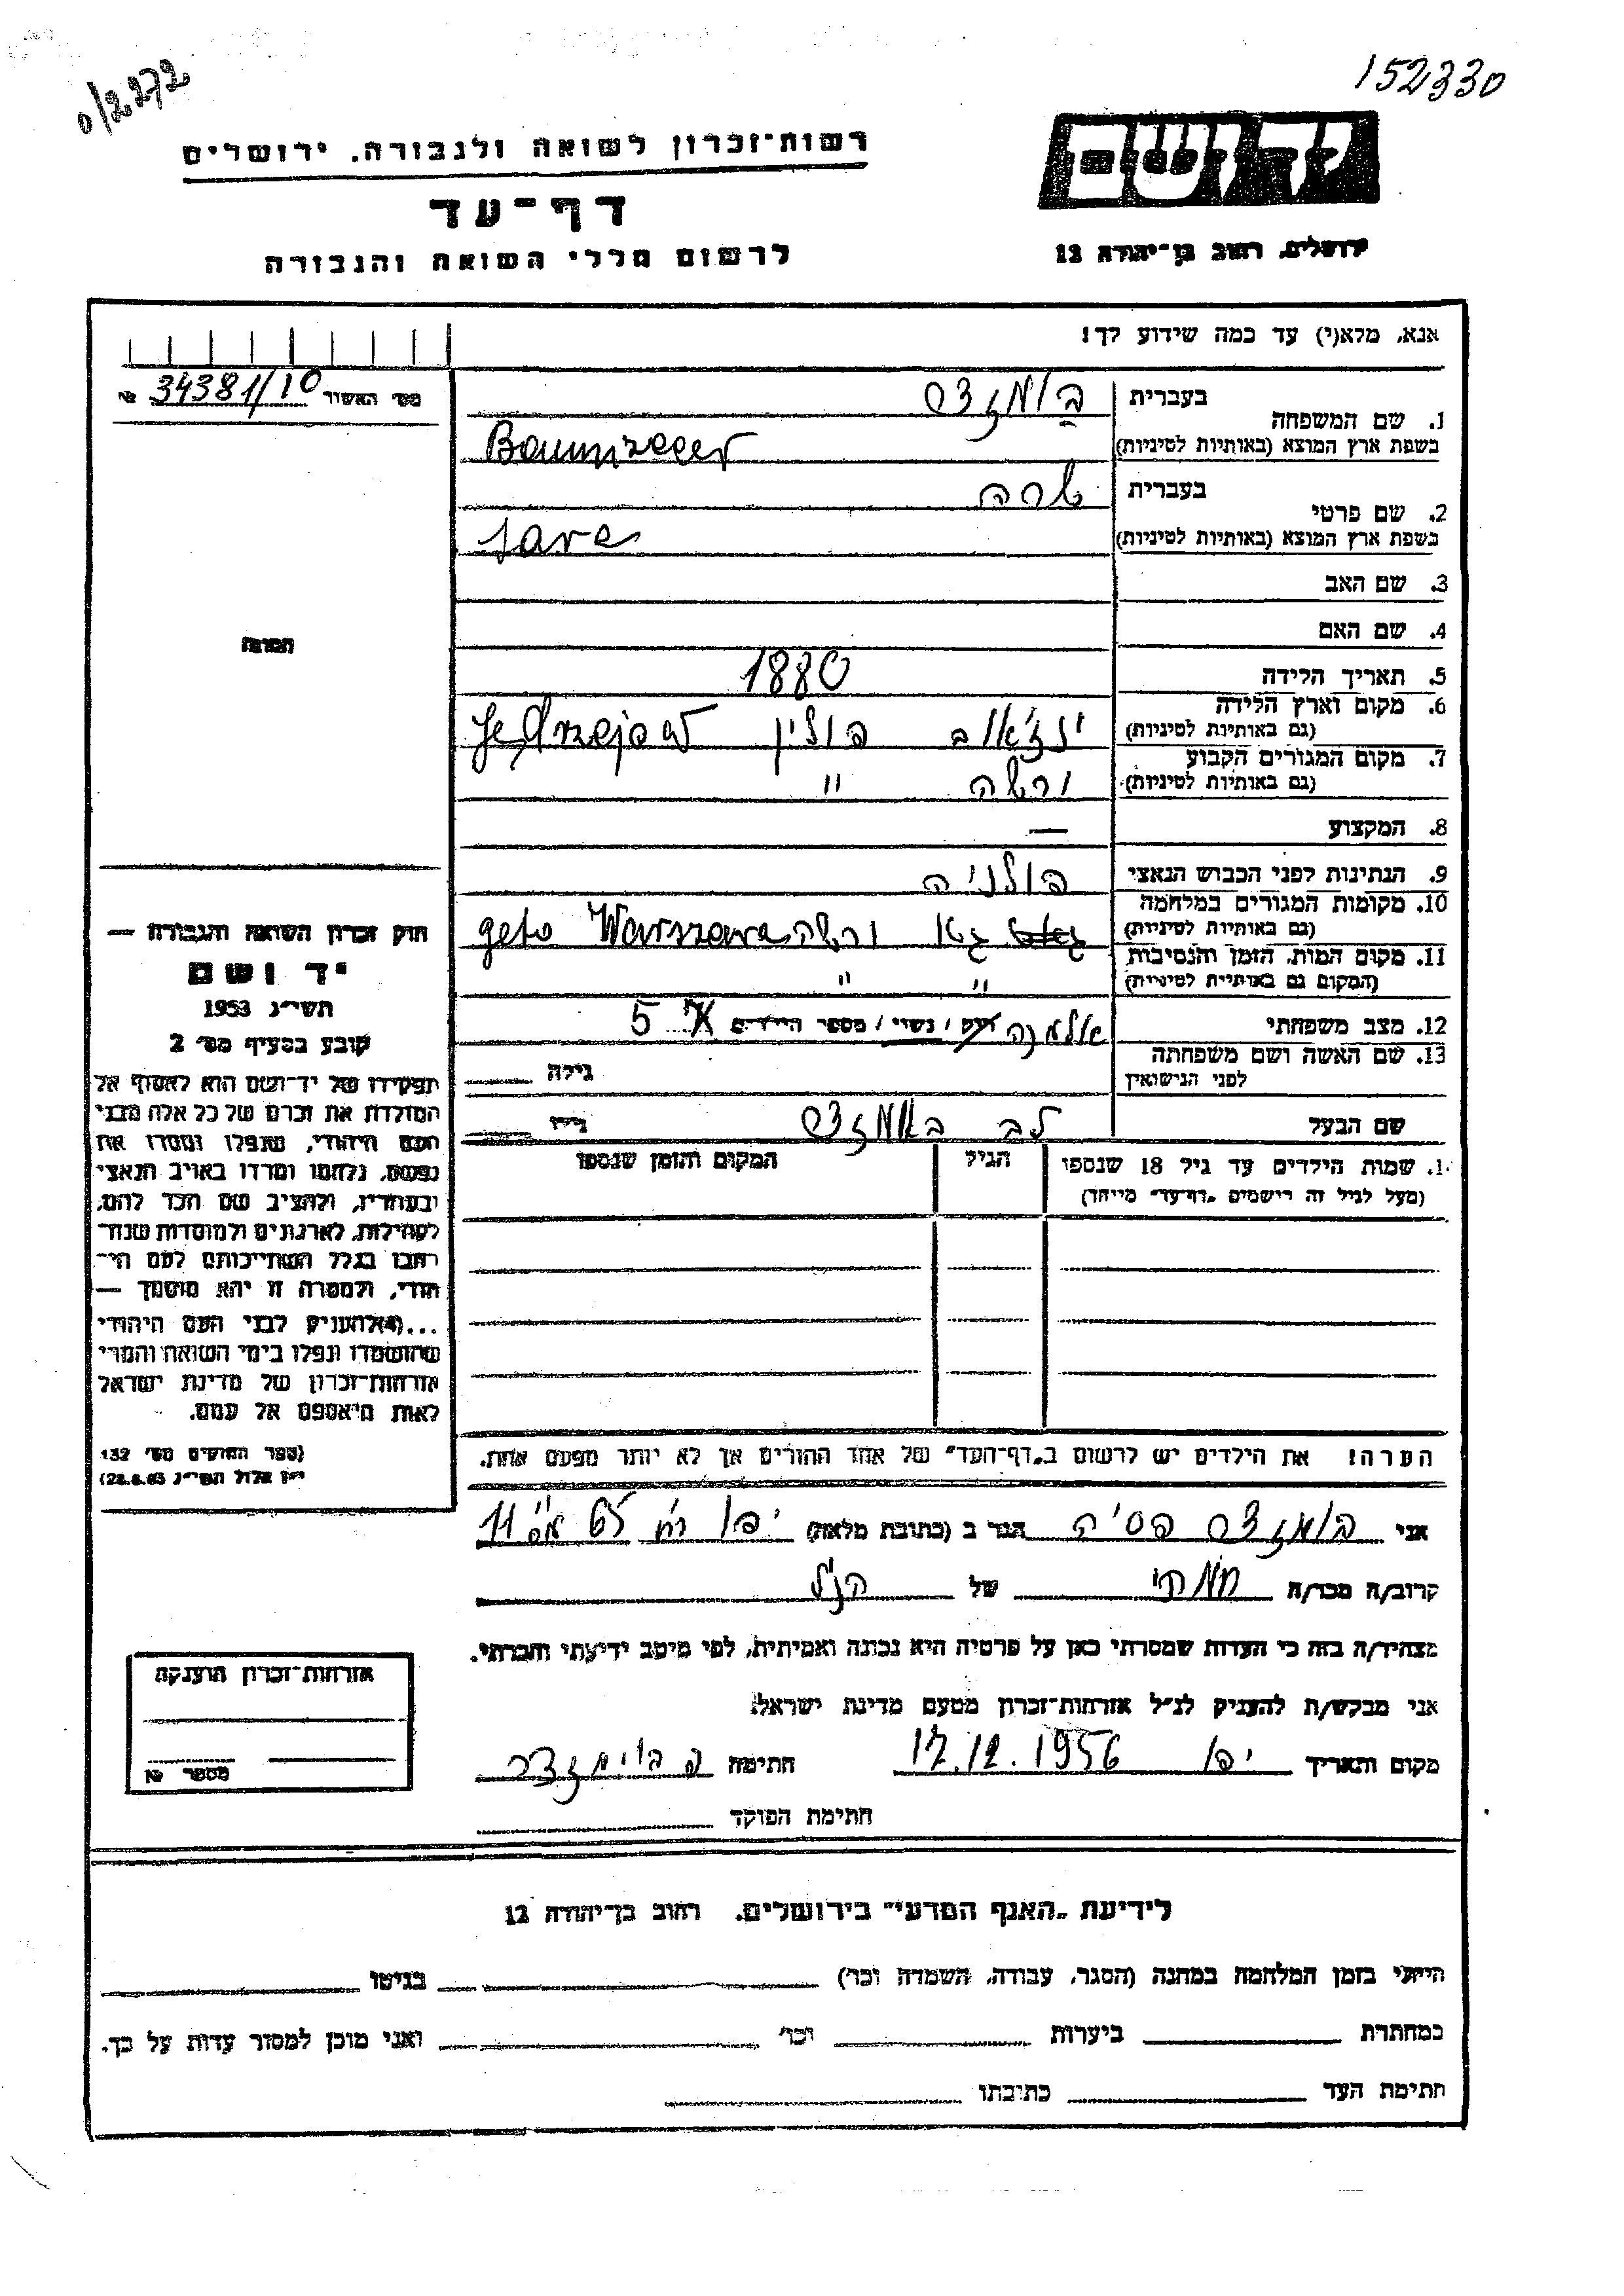 0/2272
152330
רשות־זכרון לשואה ולגבורה, ירושלים
יד ושם
דף־עד
ירושלים, רחוב בן־יהודה 12
לרשום חללי השואה והגבורה
אנא, מלא(י) עד כמה שידוע לך!
מס׳ האשור 34381/10 №
1. שם המשפחה
בעברית
בשפת ארץ המוצא (באותיות לטיניות)
2. שם פרטי
בעברית שרה
בשפת ארץ המוצא (באותיות לטיניות) Sara
3. שם האב
4. שם האם
5. תאריך הלידה 1880
6. מקום וארץ הלידה
(גם באותיות לטיניות) פולין Jędrzejów
7. מקום המגורים הקבוע
(גם באותיות לטיניות) ורשה "
8. המקצוע —
9. הנתינות לפני הכבוש הנאצי פולניה
10. מקומות המגורים במלחמה
(גם באותיות לטיניות) גטו ורשה geto Warszawa
11. מקום המות, הזמן והנסיבות
(המקום גם באותיות לטיניות) " "
12. מצב משפחתי אלמנה רוק / נשוי / מספר הילדים 5
13. שם האשה ושם משפחתה
לפני הנישואין גילה
שם הבעל לב גילו
1. שמות הילדים עד גיל 18 שנספו
(מעל לגיל זה רישמים „דף־עד״ מיוחד)
הגיל
המקום והזמן שנספו
הערה! את הילדים יש לרשום ב„דף־העד״ של אחד ההורים אך לא יותר מפעם אחת.
תמונה
חוק זכרון השואה והגבורה —
יד ושם
תשי״ג 1953
קובע בסעיף מס׳ 2
תפקידו של יד־ושם הוא לאסוף אל
המולדת את זכרם של כל אלה מבני
העם היהודי, שנפלו ומסרו את
נפשם, נלחמו ומרדו באויב הנאצי
ובעוזריו, ולהציב שם וזכר להם,
לקהילות, לארגונים ולמוסדות שנח־
רבו בגלל השתייכותם לעם הי־
הודי, ולמטרה זו יהא מוסמך —
...(4)להעניק לבני העם היהודי
שהושמדו ונפלו בימי השואה והמרי
אזרחות־זכרון של מדינת ישראל
לאות היאספם אל עמם.
(ספר החוקים מס׳ 132
אלול תשי״ג
אני הגר ב (כתובת מלאה) יפו
קרוב/ה מכר/ה של הנ״ל
מצהיר/ה בזה כי העדות שמסרתי כאן על פרטיה היא נכונה ואמיתית, לפי מיטב ידיעתי והכרתי.
אני מבקש/ת להעניק לנ״ל אזרחות־זכרון מטעם מדינת ישראל.
מקום ותאריך יפו 17.12.1956 חתימה
חתימת הפוקד
אזרחות־זכרון הוענקה
מספר №
לידיעת „האגף המדעי״ בירושלים, רחוב בן־יהודה 12
הייתי בזמן המלחמה במחנה (הסגר, עבודה, השמדה וכו׳) בגיטו
במחתרת ביערות וכו׳ ואני מוכן למסור עדות על כך.
חתימת העד כתיבתו